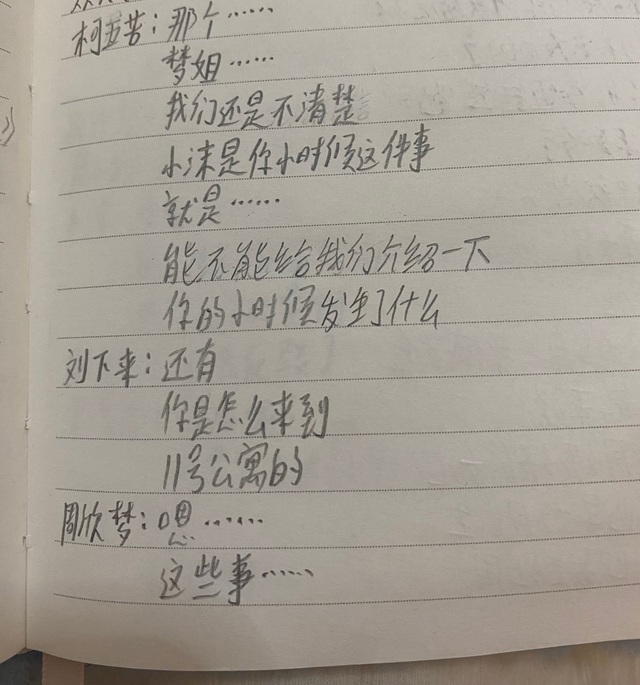 柯五苦：那个……
梦姐……
我们还是不清楚
小沫是你小时候这件事
就是……
能不能给我们介绍一下
你的小时候发生了什么
刘下来：还有
你是怎么来到
11号公寓的
周欣梦：嗯……
这些事……